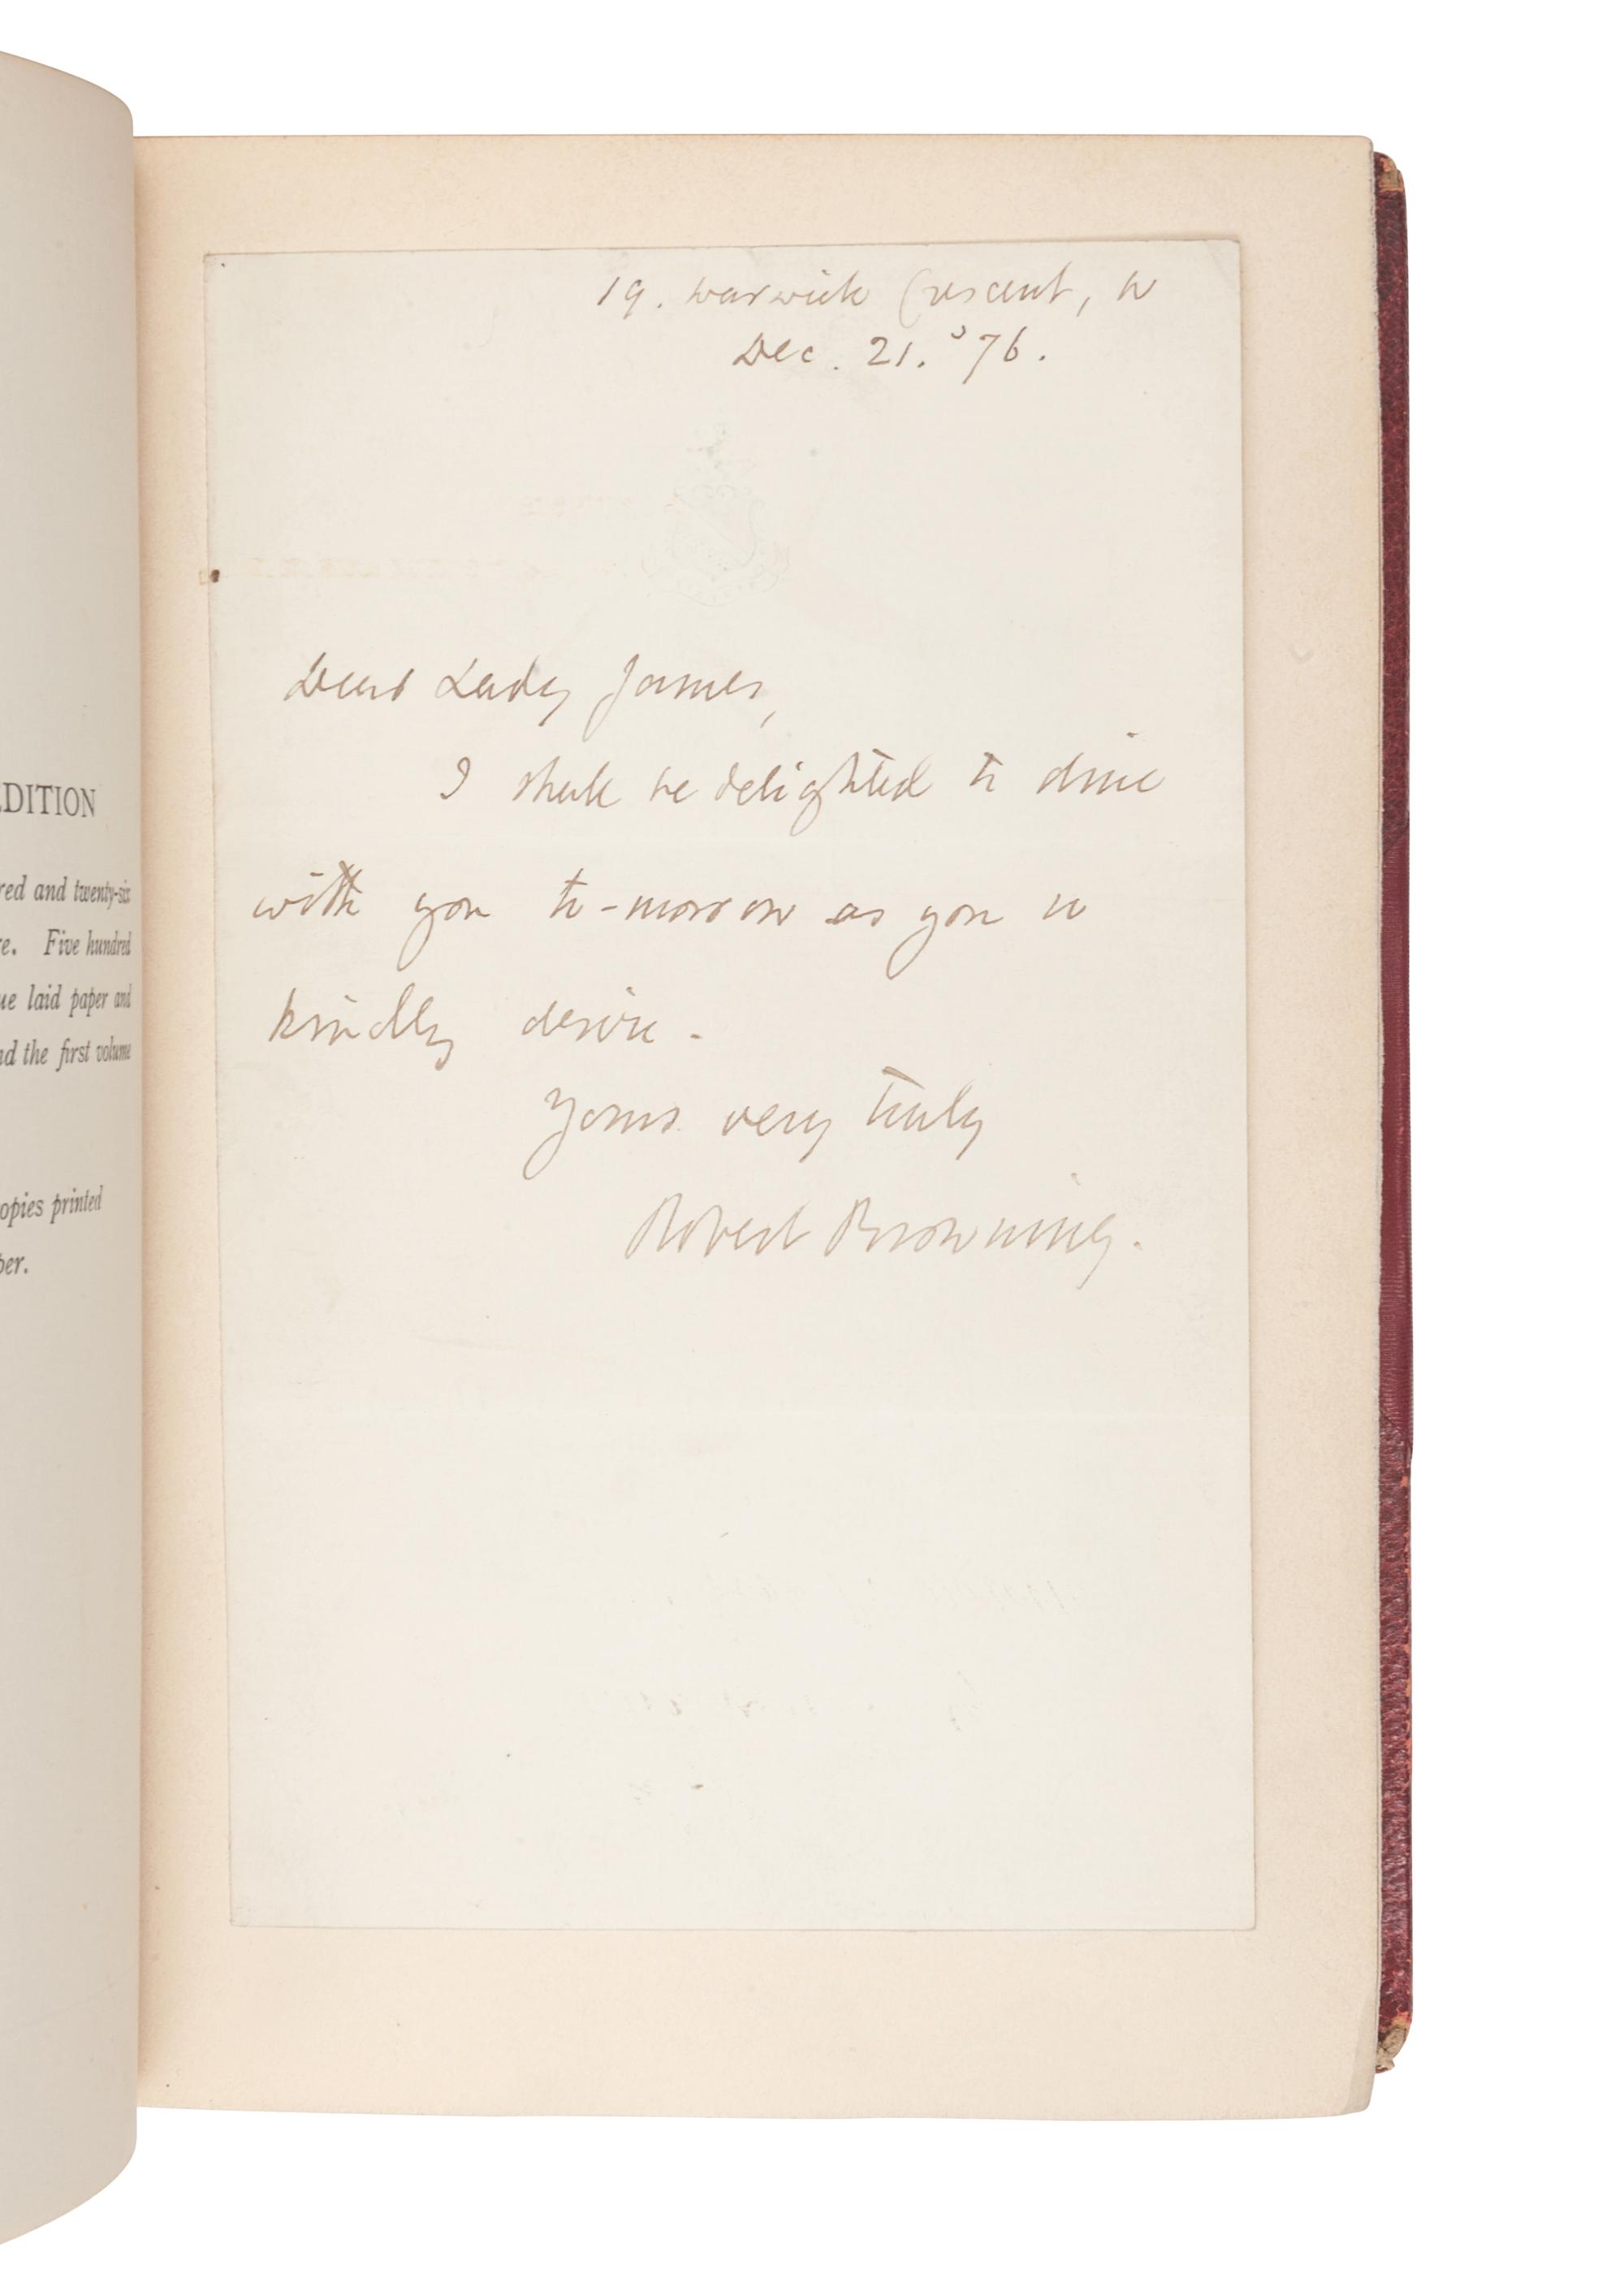 EDITION
red and twenty-six
re. Five hundred
ue laid paper and
nd the first volume
opies printed
per.
19. Warwick Crescent, W
Dec. 21. '76.
Dear Lady James,
I shall be delighted to dine
with you to-morrow as you so
kindly desire.
Yours very truly
Robert Browning.